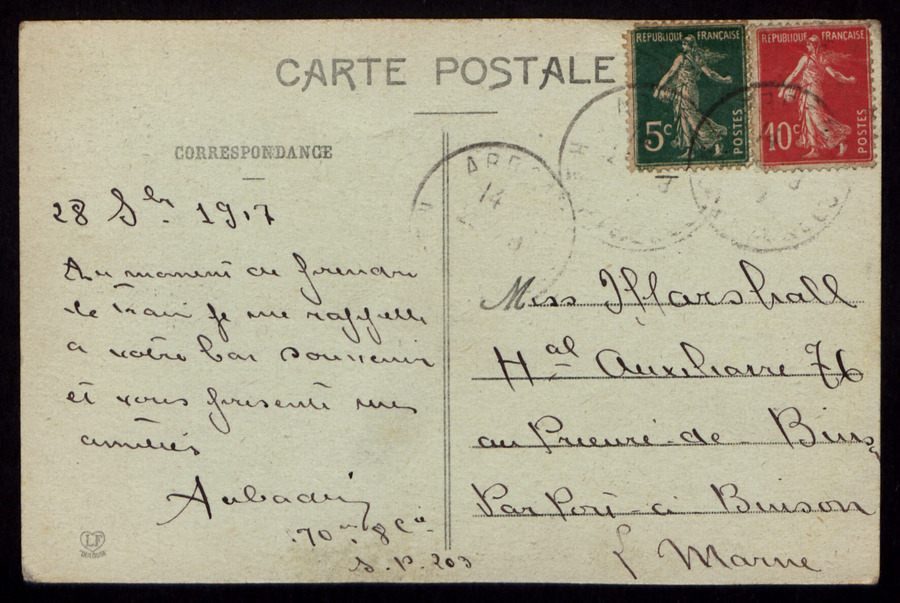 CARTE POSTALE
REPUBLIQUE FRANÇAISE
5c
POSTES
REPUBLIQUE FRANÇAISE
10c
POSTES
CORRESPONDANCE
28 Sbr 1917
Au moment de prendre
le train je me rappelle
a votre bon souvenir
et vous presente mes
amitiés
70me 8 Cie
S. P. 203
LF
TOULOUSE
14
Miss Marshall
Hal Auxiliaire 76
au Prieuré de Bins
Par Port-à-Binson
Marne